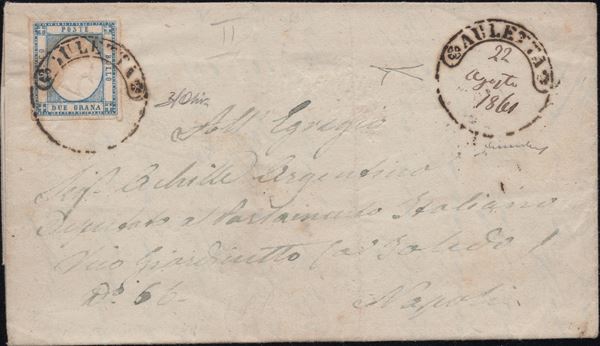 POSTE
BOLLO
DUE GRANA
AULETTA
AULETTA
22
Agosto
1861
All' Egregio
Sig. Achille Argentino
Deputato al Parlamento Italiano
Vico Giardinetto Toledo
No 66.
Napoli